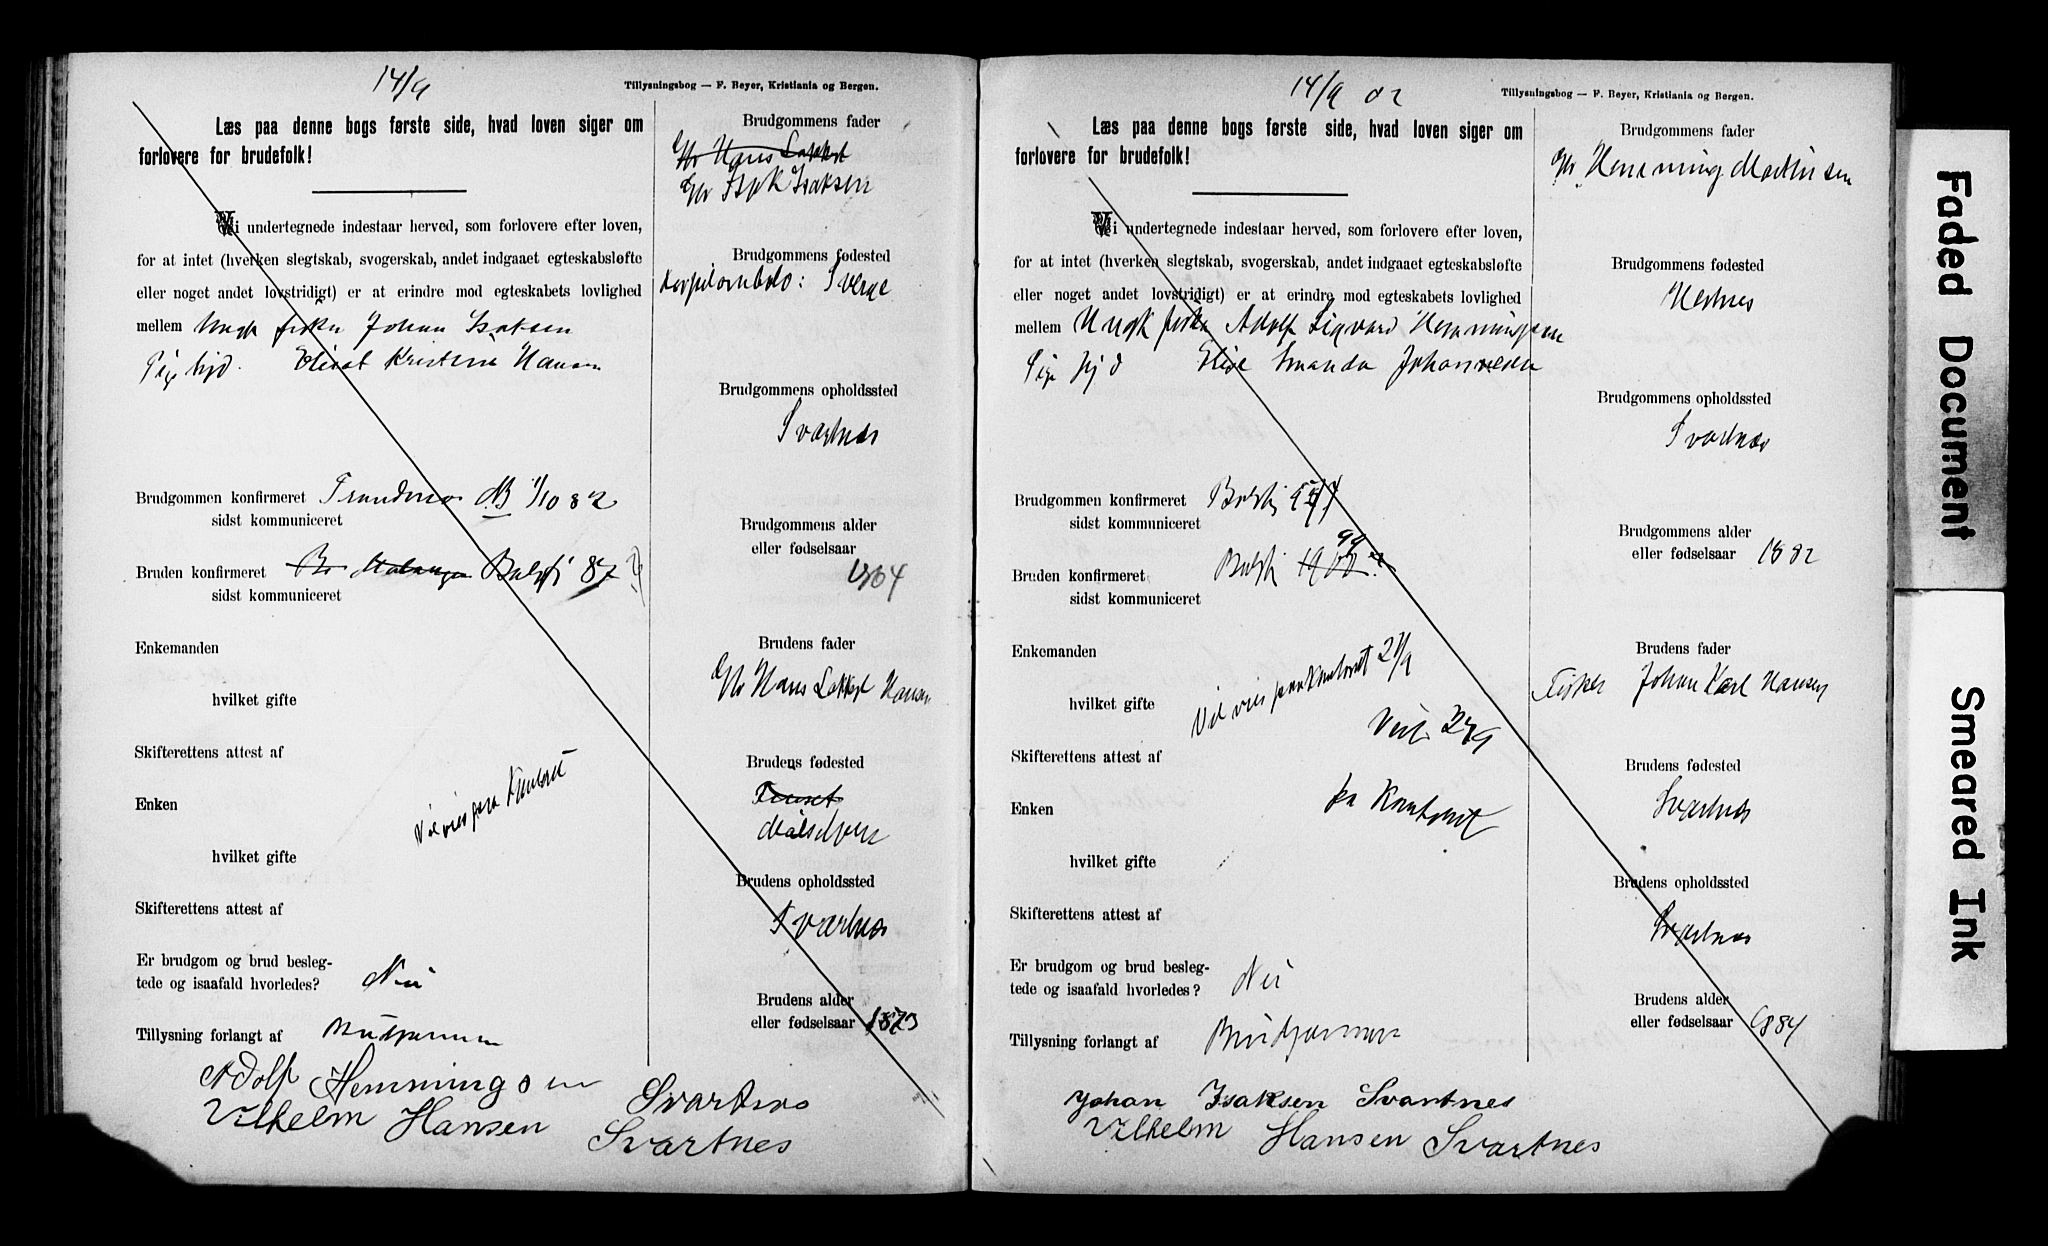 14/9
Tillysningsbog — F. Beyer, Kristiania og Bergen.
Læs paa denne bogs første side, hvad loven siger om
forlovere for brudefolk!
Vi undertegnede indestaar herved, som forlovere efter loven,
for at intet (hverken slegtskab, svogerskab, andet indgaaet egteskabsløfte
eller noget andet lovstridigt) er at erindre mod egteskabets lovlighed
mellem Ungk fisker Johan Isaksen
Pige Elisat Kristine Hansen
Brudgommen konfirmeret Trondenes 1/10 82
sidst kommuniceret
Bruden konfirmeret Balsfj 87
sidst kommuniceret
Enkemanden
hvilket gifte
Skifterettens attest af
Vil vies paa Kontoret
Enken
hvilket gifte
Skifterettens attest af
Er brudgom og brud besleg-
tede og isaafald hvorledes? Nei
Tillysning forlangt af Brudgommen
Brudgommens fader
Gbr Hans Lakket
Gbr Isak Isaksen
Brudgommens fødested
Sverige
Brudgommens opholdssted
Svartnes
Brudgommens alder
eller fødselsaar 1864
Brudens fader
Gbr Hans Hansen
Brudens fødested
Målselven
Brudens opholdssted
Svartnes
Brudens alder
eller fødselsaar 1873
Adolf Hemmingsen Svartnes
Vilhelm Hansen Svartnes
14/9 02
Tillysningsbog — F. Beyer, Kristiania og Bergen.
Læs paa denne bogs første side, hvad loven siger om
forlovere for brudefolk!
Vi undertegnede indestaar herved, som forlovere efter loven,
for at intet (hverken slegtskab, svogerskab, andet indgaaet egteskabsløfte
eller noget andet lovstridigt) er at erindre mod egteskabets lovlighed
mellem Ungk fisker Adolf Sigvard Hemmingsen
Pige Elise Amanda Johansdatter
Brudgommen konfirmeret Balsfj 97
sidst kommuniceret
99
Bruden konfirmeret Balsfj 1900
sidst kommuniceret
Enkemanden
hvilket gifte
Vil vies paa Kontoret 27/9
Viet 27/9
Skifterettens attest af
Enken
pa Kontoret
hvilket gifte
Skifterettens attest af
Er brudgom og brud besleg-
tede og isaafald hvorledes? Nei
Tillysning forlangt af Brudgommen
Brudgommens fader
Gbr Hemming Martinsen
Brudgommens fødested
Brudgommens opholdssted
Svartnes
Brudgommens alder
eller fødselsaar 1882
Brudens fader
Fisker Johan Karl Hansen
Brudens fødested
Svartnes
Brudens opholdssted
Svartnes
Brudens alder
eller fødselsaar 1884
Johan Isaksen Svantnes
Vilhelm Hansen Svartnes
Faded Document
Smeared Ink